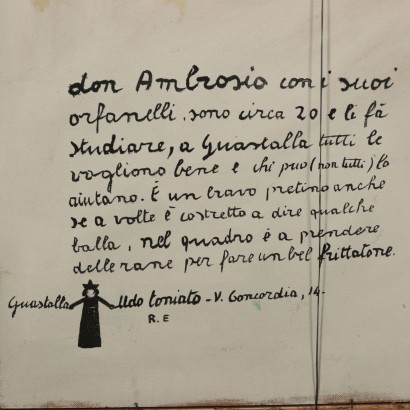 don Ambrosio con i suoi
orfanelli, sono circa 20 e li fà
studiare, a Guastalla tutti le
vogliono bene e chi puo (non tutti) lo
aiutano. È un bravo pretino anche
se a volte è costretto a dire qualche
balla, nel quadro è a prendere
delle rane per fare un bel frittatone.
Guastalla Udo Toniato - V. Concordia, 14.
R. E